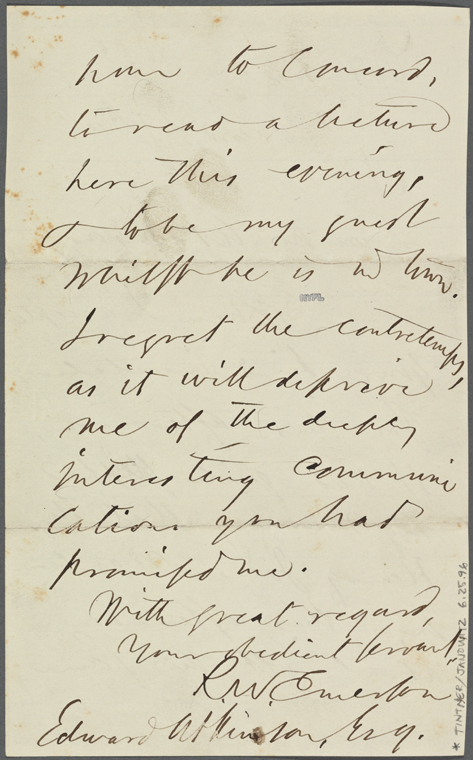 home to Concord,
to read a lecture
here this evening,
& to be my guest
whilst he is in town.
I regret the contretemps,
as it will deprive
me of the deeply
interesting communi
cations you had
promised me.
With great regard,
Your obedient servant,
R. W. Emerson
Edward Atkinson, Esq.
NYPL
* TINTNER/JANOWITZ 6.25.96